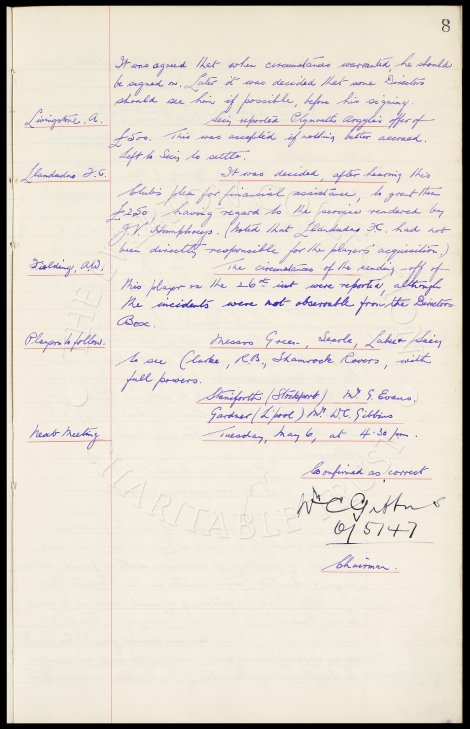 8
It was agreed that when circumstances warranted he should
be signed on. Later it was decided that some Directors
should see him if possible, before his signing.
Livingstone. A. Secy reported Plymouth Argyle's offer of
£500. This was accepted if nothing better accrued.
Left to Secy to settle.
Llandudno F.C. It was decided, after hearing this
Club's plea for financial assistance, to grant them
£250, having regard to the service rendered by
J.V. Humphreys. (Noted that Llandudno FC. had not
been directly responsible for the players' acquisition.)
Fielding, A.W. The circumstances of the sending-off of
this player on the 26th inst were reported, although
the incidents were not observable from the Directors
Box.
Players to follow. Messrs Green, Searle, Lake & Secy
to see Clarke, R.B., Shamrock Rovers, with
full powers.
Staniforth (Stockport) Mr G. Evans.
Gardner (L'pool) Mr W.C. Gibbins
Next Meeting Tuesday, May 6, at 4.30 pm.
Confirmed as correct
Wm C Gibbins
6/5/47
Chairman.
CHARITABLE